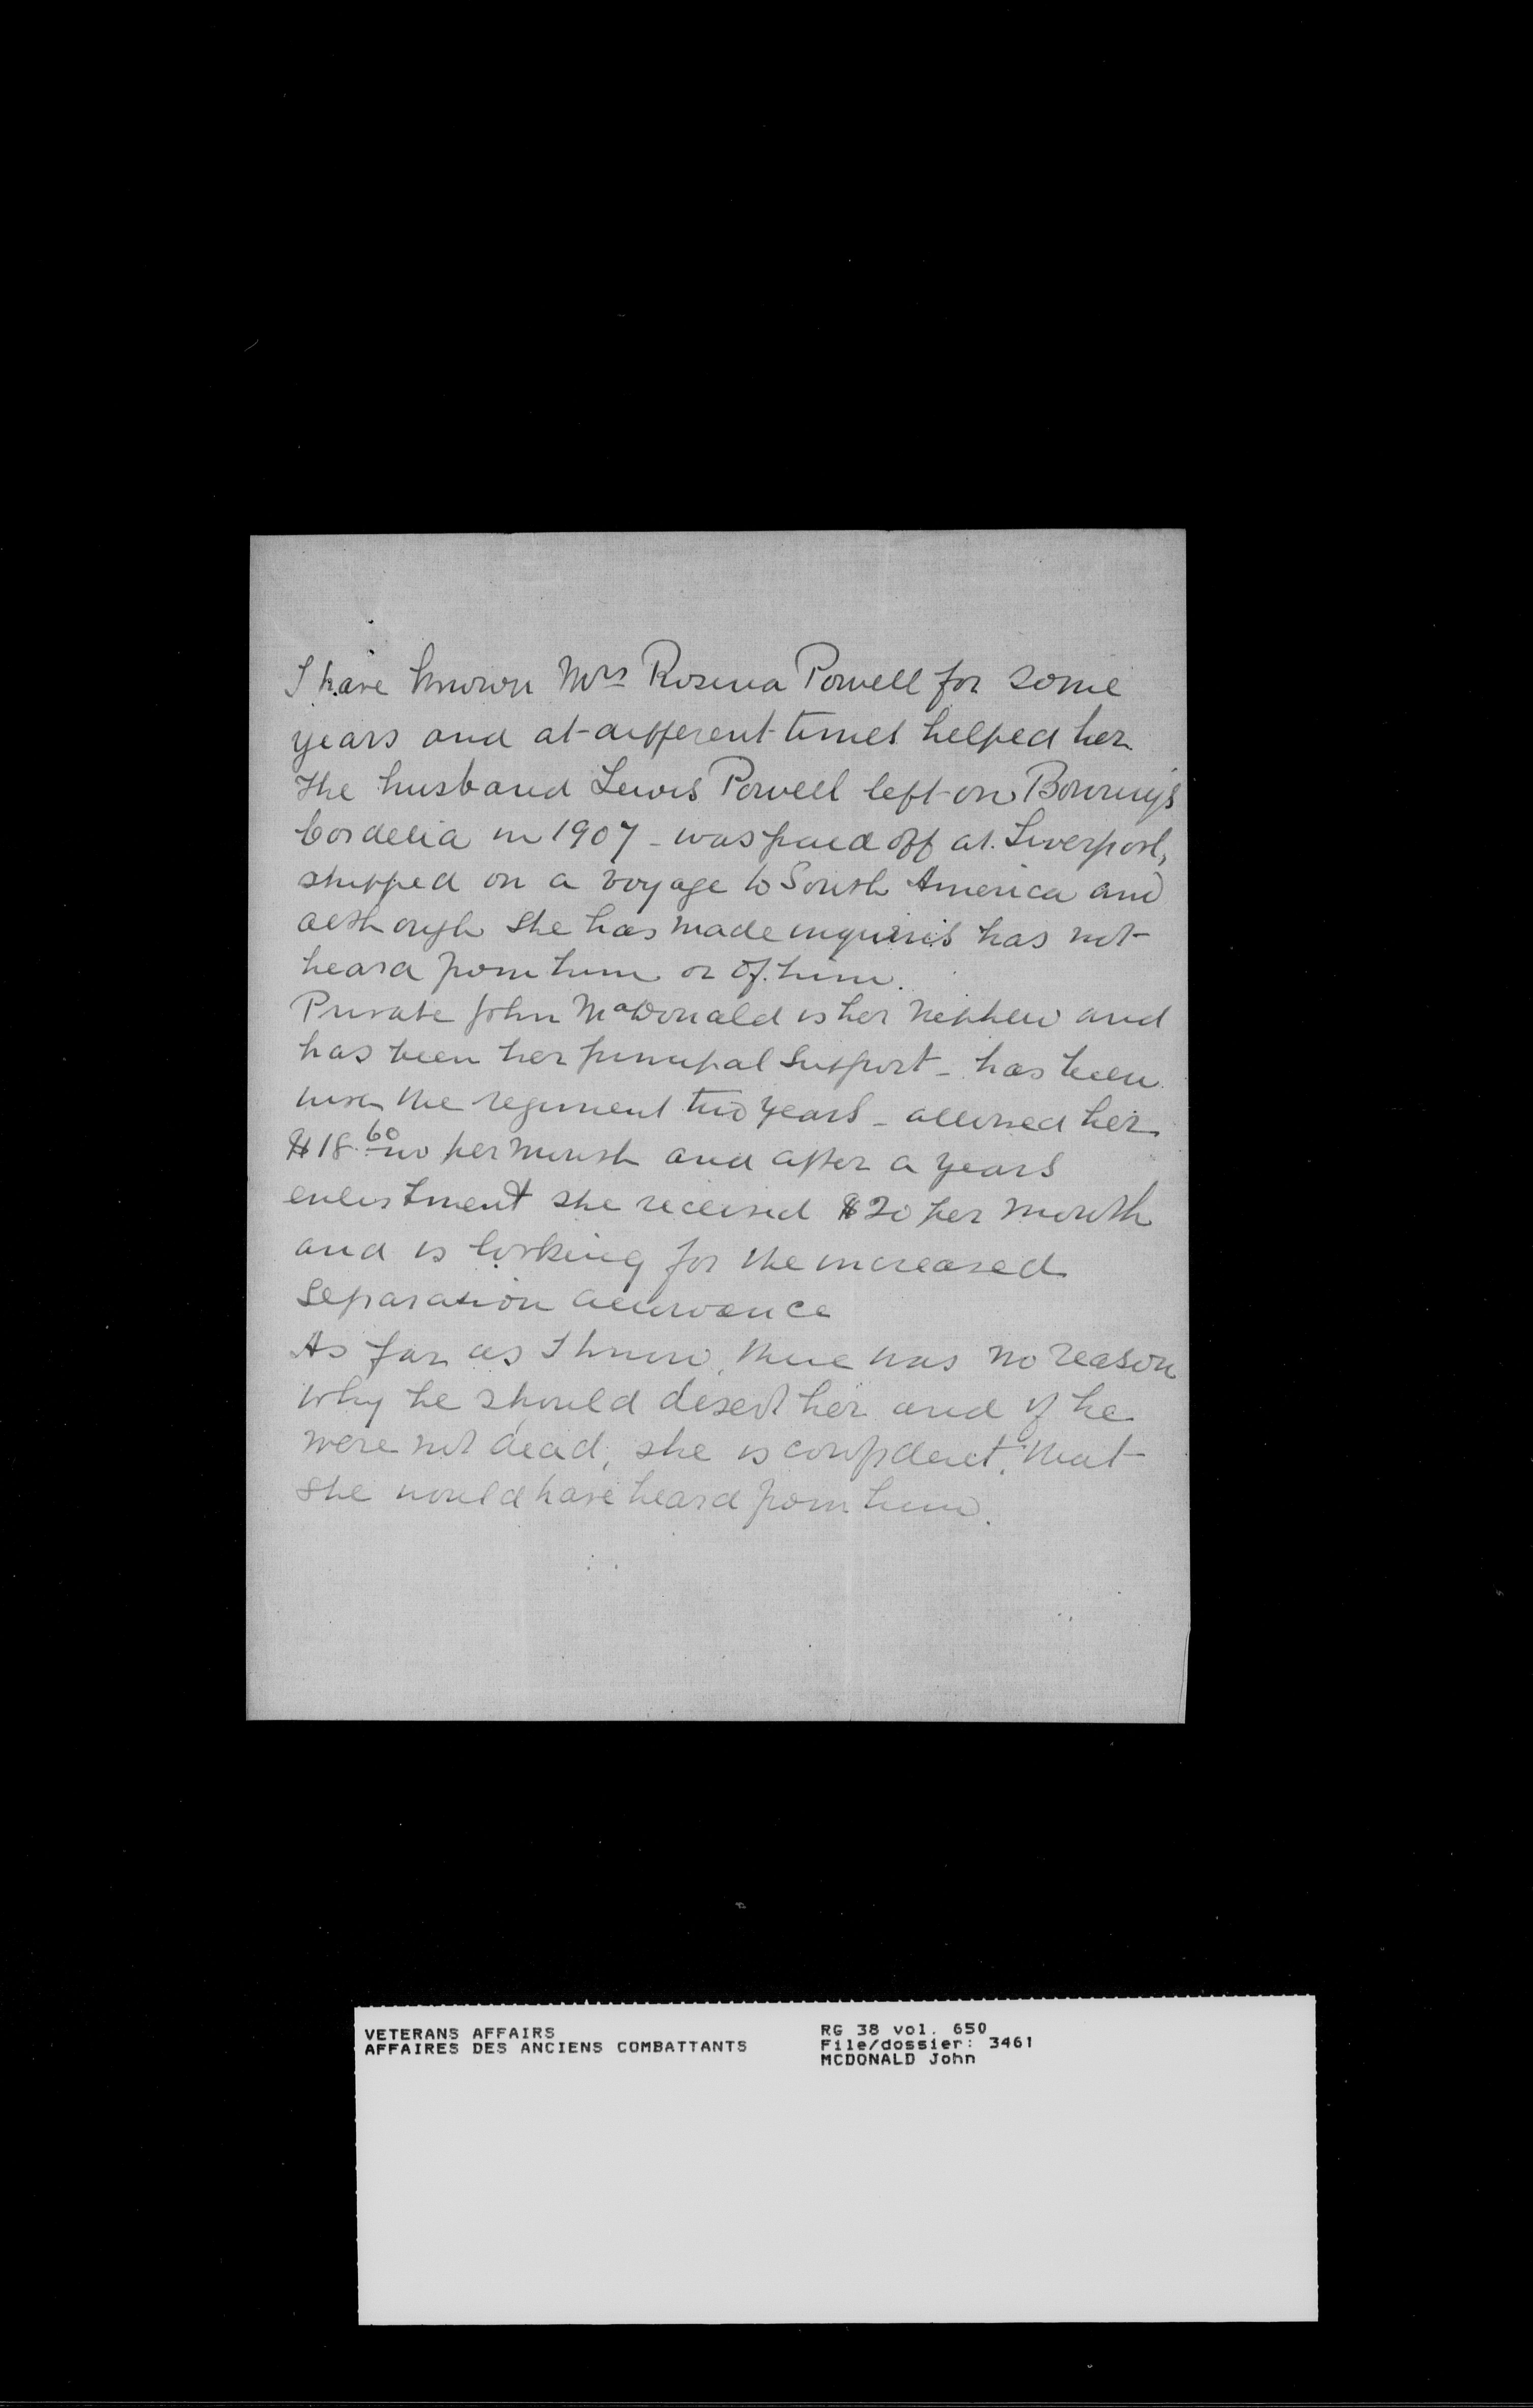 I have known Mrs Rosina Powell for some
years and at different times helped her.
The husband Lewis Powell left on Bowring's
Cordelia in 1907 - was paid off at Liverpool,
shipped on a voyage to South America and
although she has made inquiries has not
heard from him or of him.
Private John McDonald is her nephew and
has been her principal support - has been
with the regiment two years - allowed her
$18.60 per month and after a years
enlistment she received $20 per month
and is looking for the increased
separation allowance
As far as I know, there was no reason
why he should desert her and if he
were not dead, she is confident, that
she would have heard from him.
VETERANS AFFAIRS
AFFAIRES DES ANCIENS COMBATTANTS
RG 38 vol. 650
File/dossier: 3461
MCDONALD John